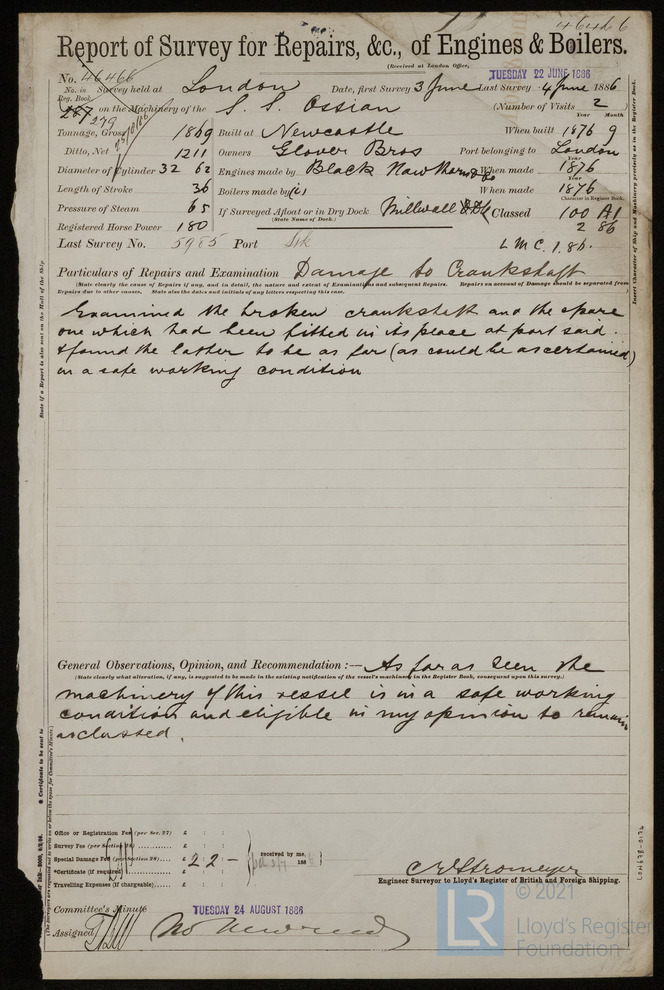 46466
Report of Survey for Repairs, &c., of Engines & Boilers.
(Received at London Office,
TUESDAY 22 JUNE 1886
No. 46466
No. in Reg. Book
Survey held at London Date, first Survey 3 June Last Survey 4 June 1886
on the Machinery of the S. S. Ossian (Number of Visits 2
279
Tonnage, Gross 1869 Built at Newcastle When built 1876 9
Year Month
Ditto, Net 1211 Owners Glover Bros Port belonging to London
Diameter of Cylinder 32 62 Engines made by Black Hawthorn & Co When made 1876
Length of Stroke 36 Boilers made by When made 1876
Pressure of Steam 65 If Surveyed Afloat or in Dry Dock Millwall Classed 100 A1
(State Name of Dock.)
Character in Register Book.
Registered Horse Power 180 2 86
Last Survey No. 5985 Port L M C. 1. 86.
Particulars of Repairs and Examination Damage to Crankshaft
(State clearly the cause of Repairs if any, and in detail, the nature and extent of Examinations and subsequent Repairs. Repairs on account of Damage should be separated from
Repairs due to other causes. State also the dates and initials of any letters respecting this case.)
Examined the broken crankshaft and the spare
one which had been fitted in its place at port said.
& found the latter to be as far (as could be ascertained)
in a safe working condition
General Observations, Opinion, and Recommendation :— As far as seen the
(State clearly what alteration, if any, is suggested to be made in the existing notification of the vessel's machinery in the Register Book, consequent upon this survey.)
machinery of this vessel is in a safe working
condition and eligible in my opinion to remain
as classed.
Office or Registration Fee (per Sec. 27) £ : :
Survey Fee (per Section 28) £ : :
Special Damage Fee (per Section 28) £ 2 2 –
received by me, 188
*Certificate (if required) £ : :
Travelling Expenses (if chargeable) £ : :
C E Stromeyer
Engineer Surveyor to Lloyd's Register of British and Foreign Shipping.
Committee's Minute TUESDAY 24 AUGUST 1886
Assigned
State if a Report is also sent on the Hull of the Ship
Insert Character of Ship and Machinery precisely as in the Register Book.
LR
© 2021
Lloyd's Register
Foundation